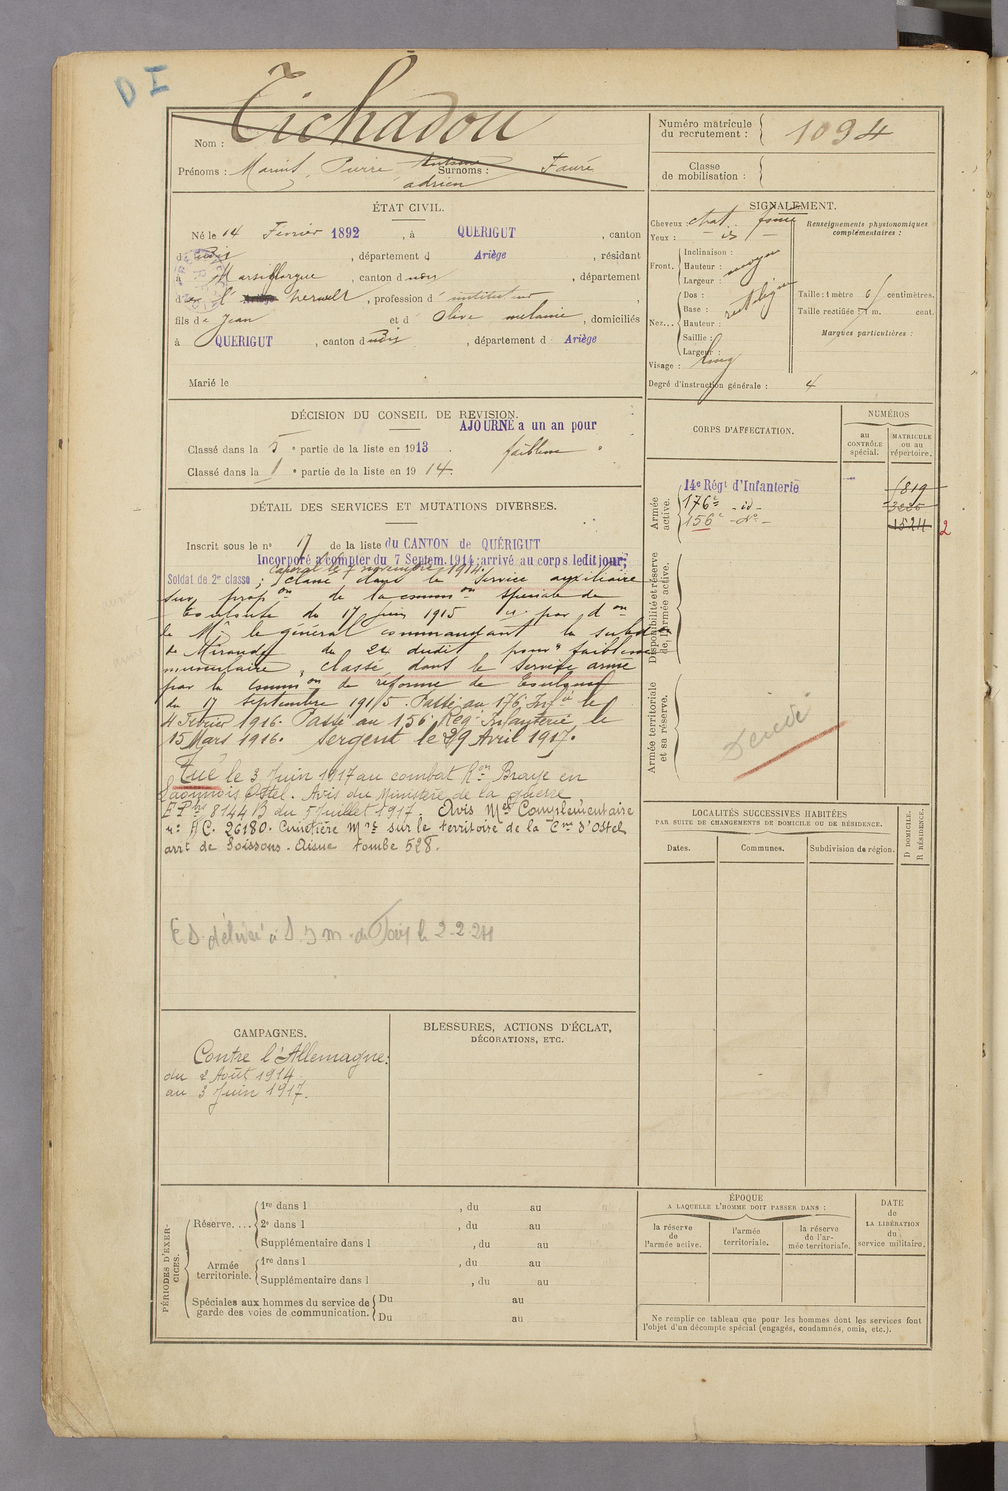 D I
Tichadou
Nom :
Prénoms : Marius, Pierre, Antoine Surnoms : Fauré
adrien
Numéro matricule du recrutement : 1094
Classe de mobilisation :
ÉTAT CIVIL.
Né le 14 Février 1892, à QUERIGUT, canton
du dit, département d Ariège, résidant
à Marsillargue, canton d, département
de l'Ariège herault, profession d'instituteur
fils de Jean et d Olive melanie, domiciliés
à QUERIGUT, canton d, département d Ariège
Marié le
SIGNALEMENT.
Cheveux chat. foncé
Yeux : id
Front. Inclinaison :
Hauteur : moyen
Largeur :
Nez... Dos : rectiligne
Base :
Hauteur :
Saillie :
Largeur :
Visage : long
Renseignements physionomiques complémentaires :
Taille : 1 mètre 61 centimètres.
Taille rectifiée : 1 m. cent.
Marques particulières :
Degré d'instruction générale : 4
DÉCISION DU CONSEIL DE REVISION.
AJOURNÉ a un an pour
Classé dans la 5e partie de la liste en 1913. faiblesse
Classé dans la 1e partie de la liste en 1914.
DÉTAIL DES SERVICES ET MUTATIONS DIVERSES.
Inscrit sous le n° 17 de la liste du CANTON de QUÉRIGUT
Incorporé à compter du 7 Septem. 1914; arrivé au corps ledit jour;
Caporal le 7 novembre 1914.
Soldat de 2e classe; classé dans le Service auxiliaire
sur propon de la common spéciale de
Toulouse du 17 juin 1915 par don
de Mr le général commandant la subdon
de Mirande du 24 dudit pour "faiblesse
musculaire", classé dans le service armé
par la common de réforme de Toulouse
du 17 septembre 1915. Passé au 176 Infie le
4 Février 1916. Passé au 156 Reg. Infanterie, le
15 Mars 1916. Sergent le 29 Avril 1917.
Tué le 3 Juin 1917 au combat Ron Braye en
Laonnois Ostel. Avis du Ministère de la guerre
8144 B du 5 Juillet 1917. Avis Mel Complémentaire
n° AC. 26180. Cimetière Mre sur le territoire de la Cne d'Ostel
arrt de Soissons. Aisne tombe 528.
E S. délivré à
CORPS D'AFFECTATION.
NUMÉROS
au CONTRÔLE spécial.
MATRICULE ou au répertoire.
Armée active.
14e Régt d'Infanterie 1819
176e _id_
156e _do_ 1524 2
Disponibilité et réserve de l'armée active.
Armée territoriale et sa réserve.
Décédé
LOCALITÉS SUCCESSIVES HABITÉES
PAR SUITE DE CHANGEMENTS DE DOMICILE OU DE RÉSIDENCE.
Dates.
Communes.
Subdivision de région.
D DOMICILE.
R RÉSIDENCE.
CAMPAGNES.
Contre l'Allemagne:
du 2 Août 1914
au 3 Juin 1917.
BLESSURES, ACTIONS D'ÉCLAT,
DÉCORATIONS, ETC.
PÉRIODES D'EXERCICES.
Réserve.... 1re dans l , du au
2e dans l , du au
Supplémentaire dans l , du au
Armée territoriale. 1re dans l , du au
Supplémentaire dans l , du au
Spéciales aux hommes du service de garde des voies de communication. Du au
Du au
ÉPOQUE
A LAQUELLE L'HOMME DOIT PASSER DANS :
la réserve de l'armée active.
l'armée territoriale.
la réserve de l'armée territoriale.
DATE de LA LIBÉRATION du service militaire.
Ne remplir ce tableau que pour les hommes dont les services font
l'objet d'un décompte spécial (engagés, condamnés, omis, etc.).